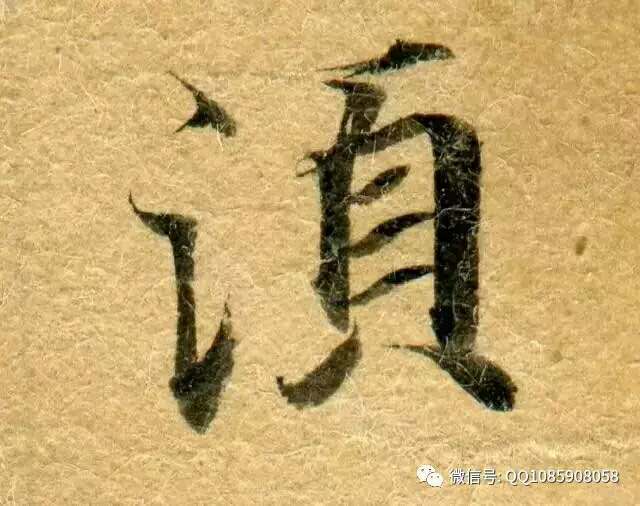 湏
微信号: QQ1085908058